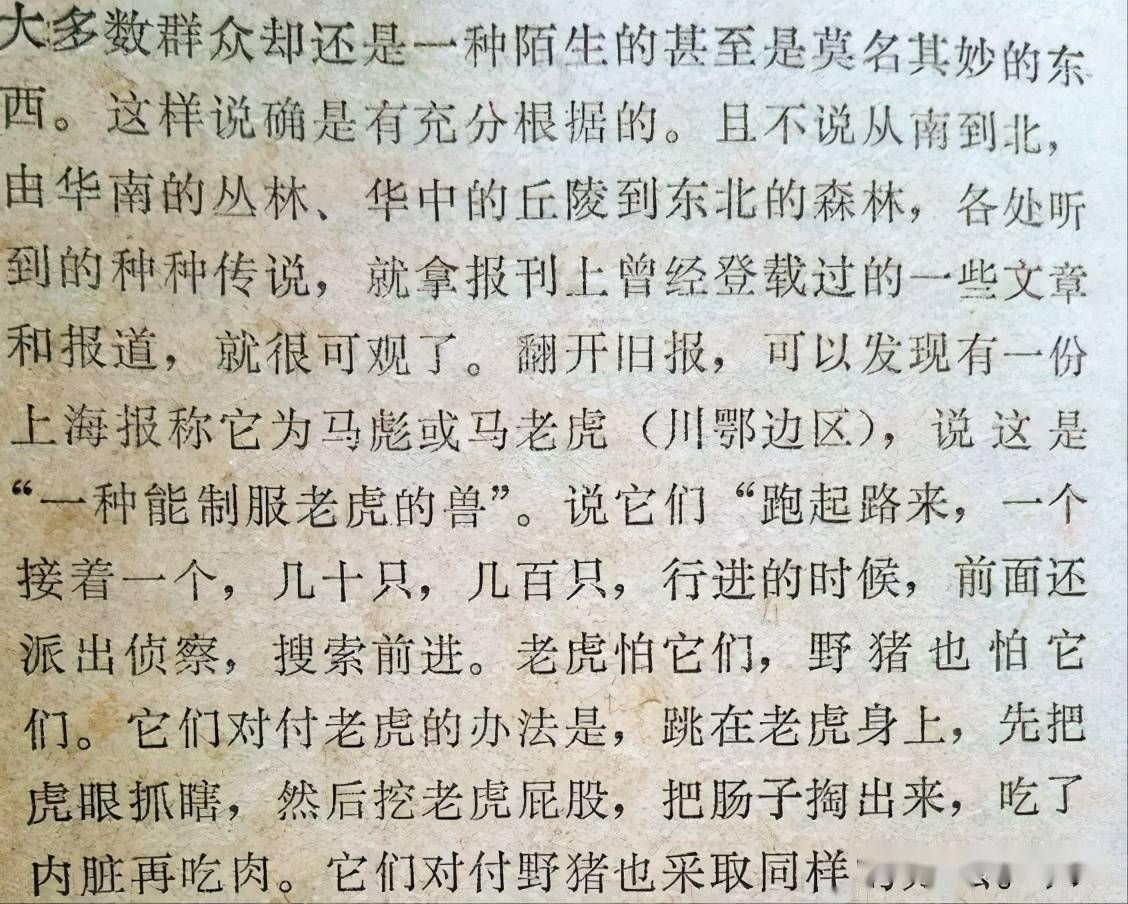 大多数群众却还是一种陌生的甚至是莫名其妙的东
西。这样说确是有充分根据的。且不说从南到北，
由华南的丛林、华中的丘陵到东北的森林，各处听
到的种种传说，就拿报刊上曾经登载过的一些文章
和报道，就很可观了。翻开旧报，可以发现有一份
上海报称它为马彪或马老虎（川鄂边区），说这是
“一种能制服老虎的兽”。说它们“跑起路来，一个
接着一个，几十只，几百只，行进的时候，前面还
派出侦察，搜索前进。老虎怕它们，野猪也怕它
们。它们对付老虎的办法是，跳在老虎身上，先把
虎眼抓瞎，然后挖老虎屁股，把肠子掏出来，吃了
内脏再吃肉。它们对付野猪也采取同样